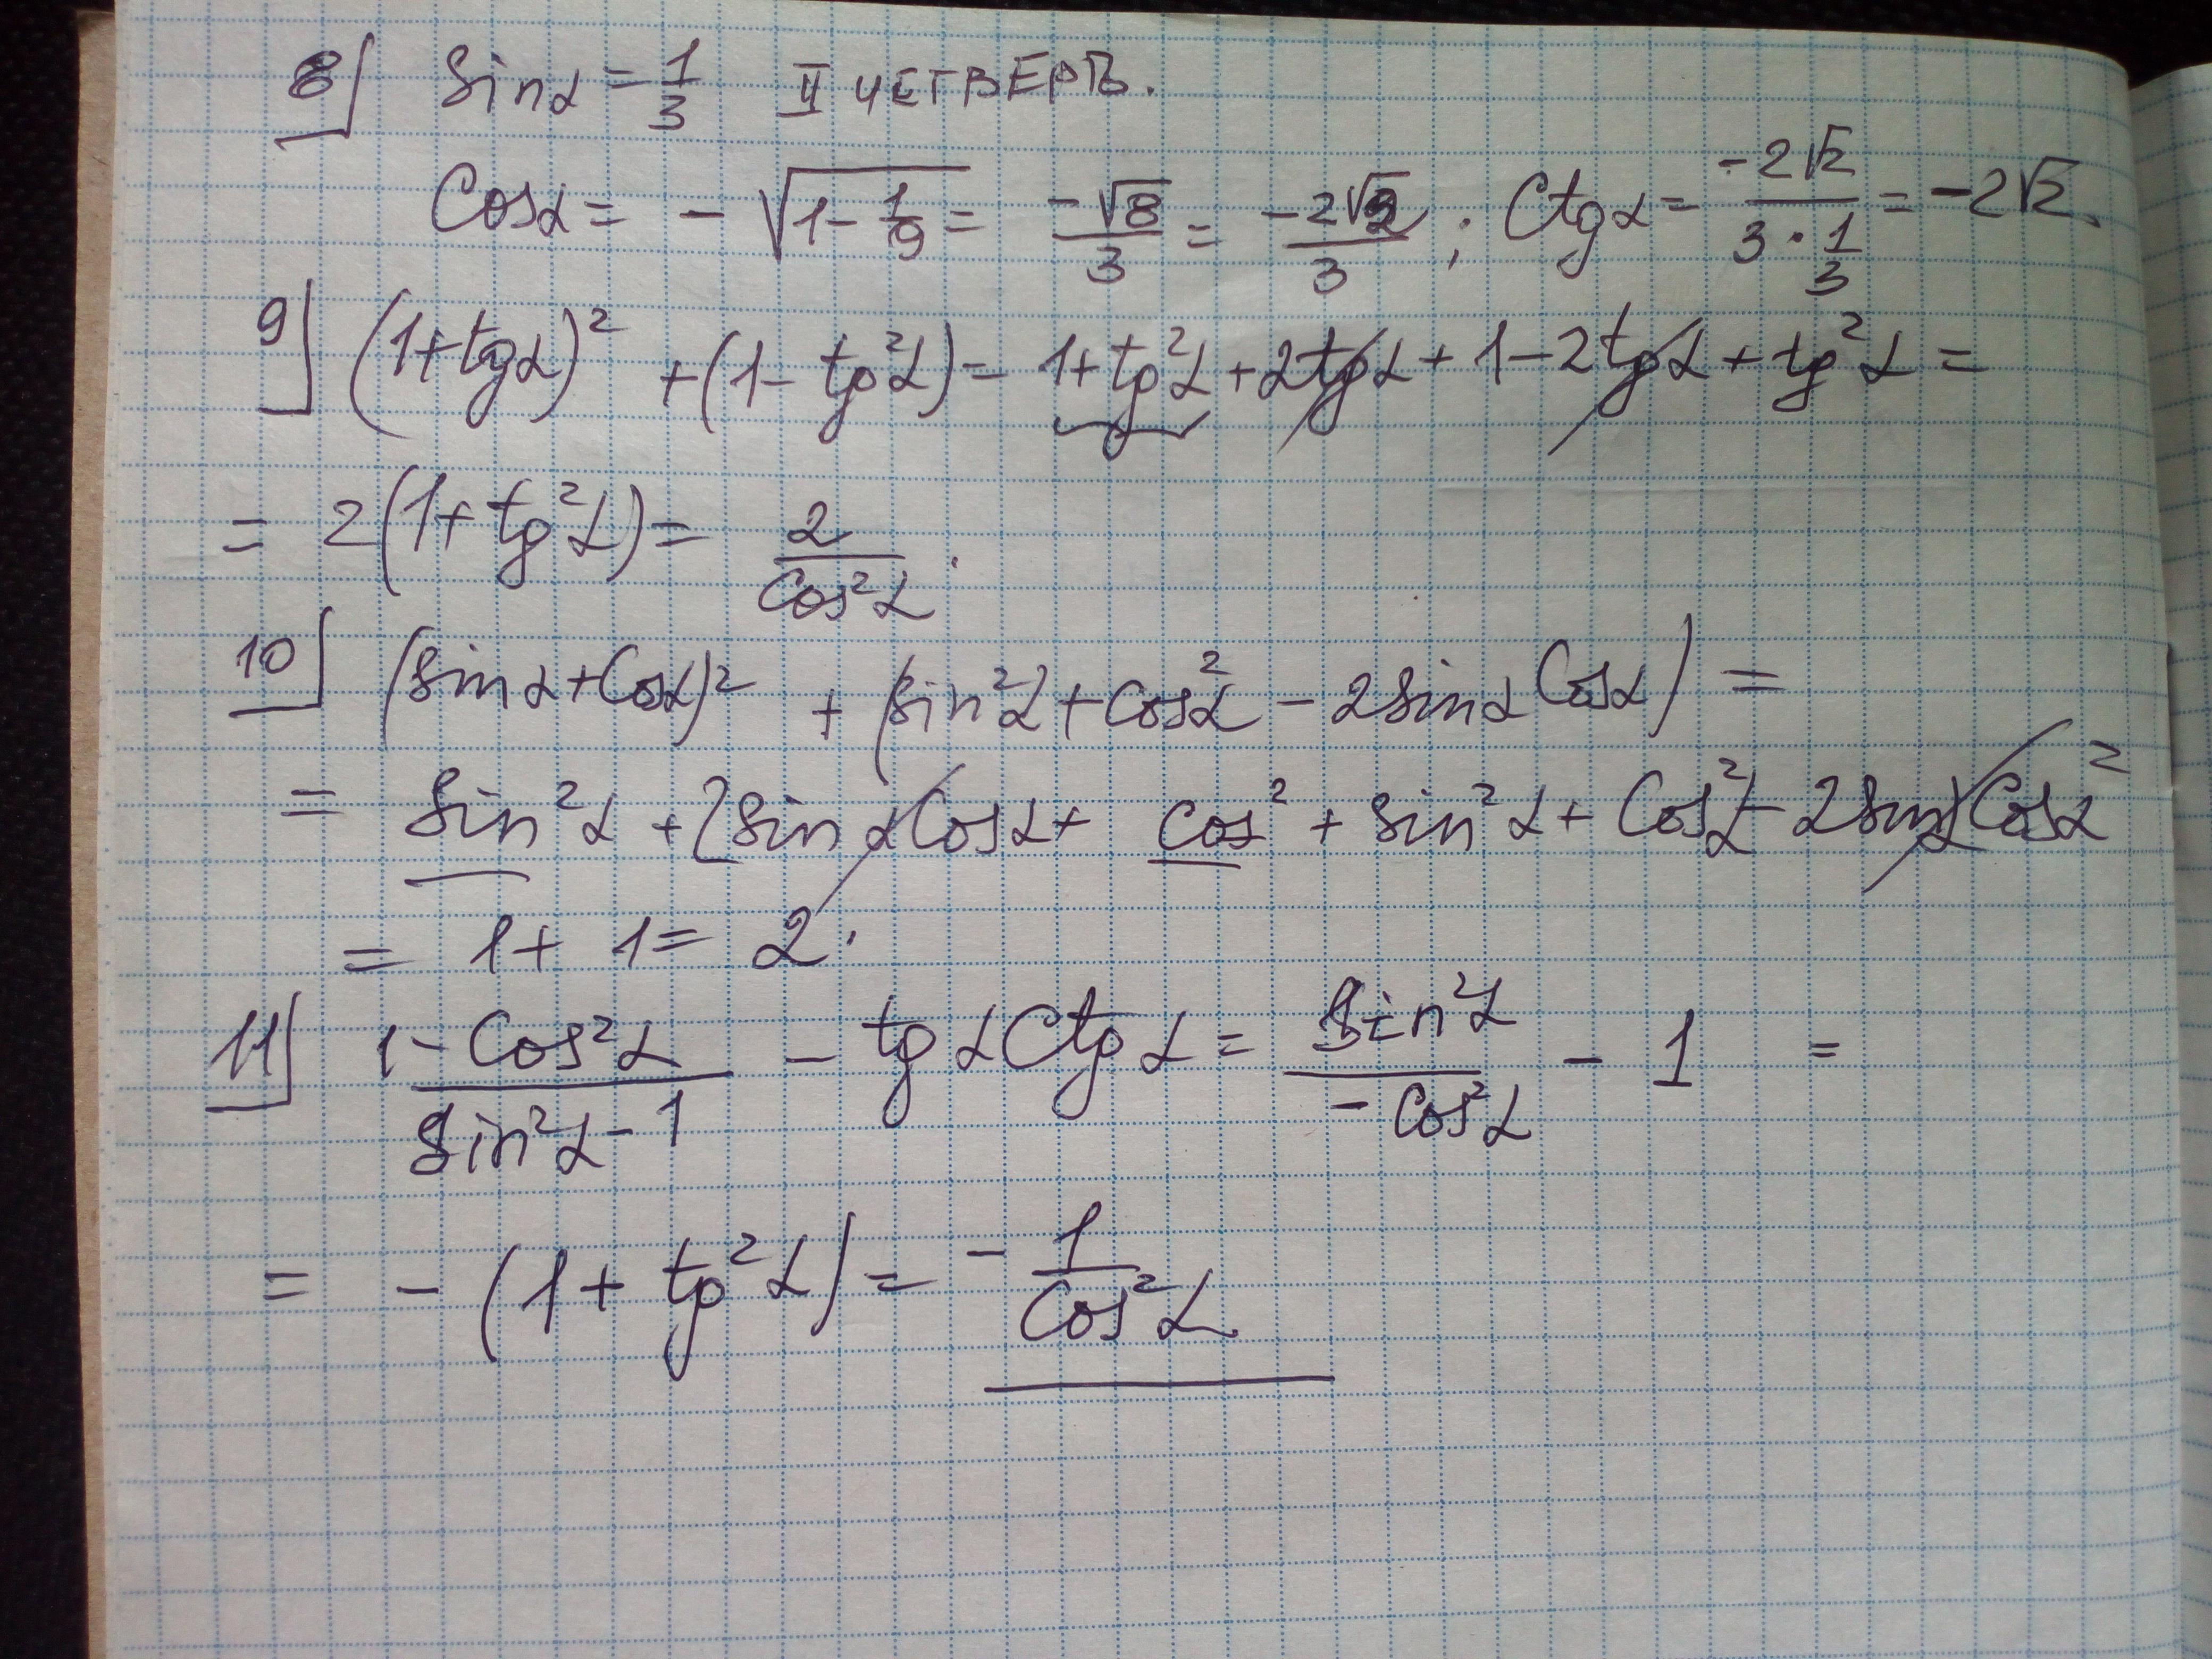 8] Sinα = 1/3 II ЧЕТВЕРТЬ.
Cosα = -√(1 - 1/9) = -√8/3 = -2√2/3 ; Ctgα = -2√2/(3·1/3) = -2√2.
9] (1+tgα)² + (1 - tg²α) = 1 + tg²α + 2tgα + 1 - 2tgα + tg²α =
= 2(1+tg²α) = 2/Cos²α.
10] (Sinα+Cosα)² + (Sin²α + Cos²α - 2SinαCosα) =
= Sin²α + 2SinαCosα + Cos² + Sin²α + Cos²α - 2SinαCosα²
= 1 + 1 = 2.
11] (1 - Cos²α)/(Sin²α - 1) - tgαCtgα = Sin²α/(-Cos²α) - 1 =
= -(1 + tg²α) = -1/Cos²α